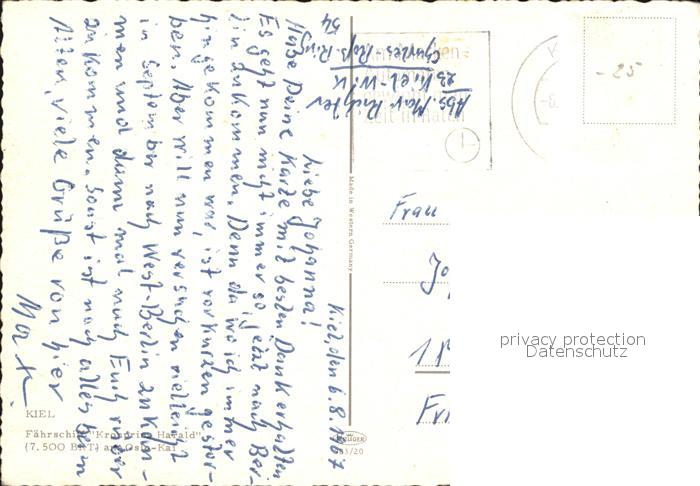 Kiel, den 6.8.1967
Liebe Johanna!
Habe Deine Karte mit besten Dank erhalten
Es geht nun nicht immer so, jetzt nach Ber-
lin zu kommen. Denn da wo ich immer
hingekommen war, ist vor kurzen gestor-
ben. Aber will nun versuchen vielleicht
in September nach West-Berlin zu kom-
men und dann mal nach Euch rüber
zu kommen. Sonst ist noch alles beim
Alten, viele Grüße von hier
Max.
KIEL
Fährschiff "Kronprins Harald"
(7.500 BRT) am Oslo-Kai
Made in Western Germany
KRÜGER
Abs. Max Richter
23 Kiel-Wik
54
-25
Frau
Jo
Fr
privacy protection
Datenschutz